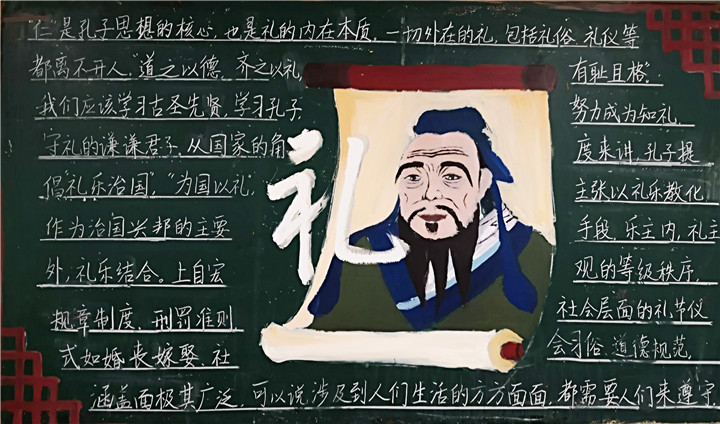 “仁”是孔子思想的核心，也是礼的内在本质，一切外在的礼，包括礼俗、礼仪等
都离不开人.“道之以德、齐之以礼, 有耻且格”.
我们应该学习古圣先贤,学习孔子, 努力成为知礼、
守礼的谦谦君子. 从国家的角 度来讲,孔子提
倡礼乐治国”, “为国以礼”, 主张以礼乐教化
作为治国兴邦的主要 手段, 乐主内, 礼主
外, 礼乐结合。上自宏 观的等级秩序,
规章制度、刑罚准则 社会层面的礼节仪
式如婚丧嫁娶、社 会习俗、道德规范,
涵盖面极其广泛, 可以说涉及到人们生活的方方面面, 都需要人们来遵守.
礼